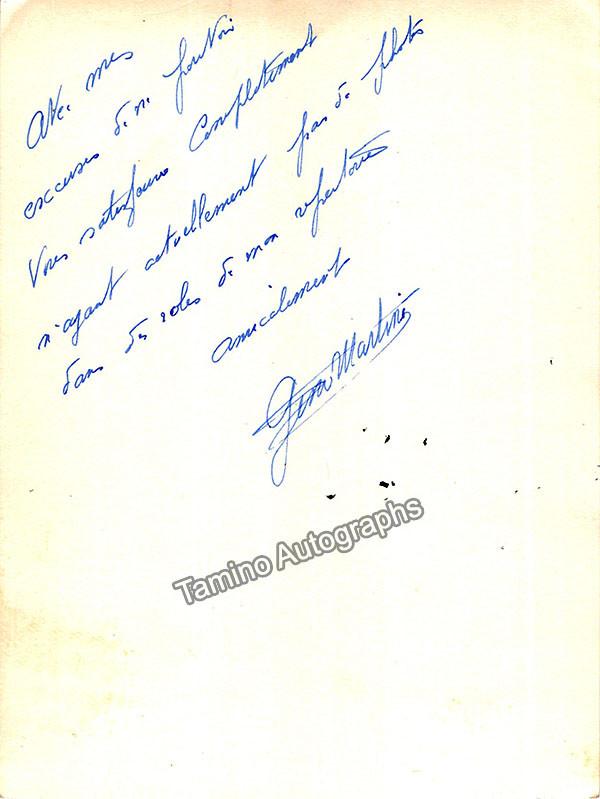 Avec mes
excuses de ne pouvoir
Vous satisfaire Complètement
n'ayant actuellement pas de photos
dans des roles de mon répertoire
amicalement
Martini
Tamino Autographs